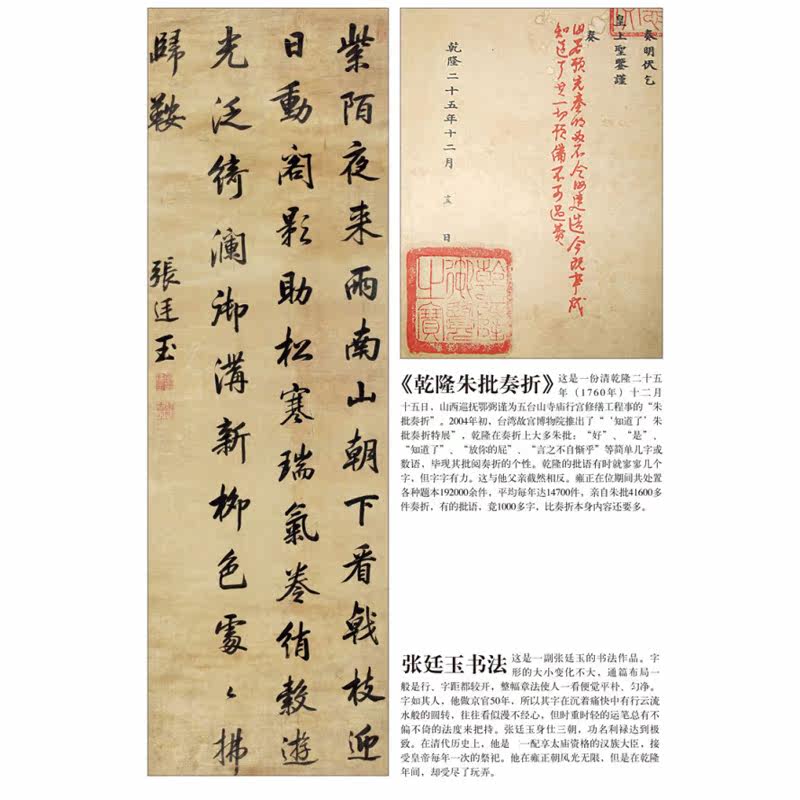 紫陌夜来雨南山朝下看戟枝迎
日動閣影助松寒瑞氣卷綃縠遊
光泛綺瀾御溝新柳色處々拂
歸鞍
張廷玉
奏明伏乞
皇上聖鑒謹
奏
預先奏 建造今既 成
知道了其一切預備不可過費
乾隆二十五年十二月 日
乾隆御覽之寶
《乾隆朱批奏折》这是一份清乾隆二十五
年（1760年）十二月
十五日，山西巡抚鄂弼谨为五台山寺庙行宫修缮工程事的“朱
批奏折”。2004年初，台湾故宫博物院推出了“‘知道了’朱
批奏折特展”，乾隆在奏折上大多朱批：“好”、“是”、
“知道了”、“放你的屁”、“言之不自惭乎”等简单几字或
数语，毕现其批阅奏折的个性。乾隆的批语有时就寥寥几个
字，但字字有力。这与他父亲截然相反。雍正在位期间共处置
各种题本192000余件，平均每年达14700件，亲自朱批41600多
件奏折，有的批语，竟1000多字，比奏折本身内容还要多。
张廷玉书法 这是一副张廷玉的书法作品。字
形的大小变化不大，通篇布局
一般是行、字距都较开，整幅章法使人一看便觉平朴、匀净。
字如其人，他做京官50年，所以其字在沉着痛快中有行云流
水般的圆转，往往看似漫不经心，但时重时轻的运笔总有不
偏不倚的法度来把持。张廷玉身仕三朝，功名利禄达到极
致。在清代历史上，他是 一配享太庙资格的汉族大臣，接
受皇帝每年一次的祭祀。他在雍正朝风光无限，但是在乾隆
年间，却受尽了玩弄。